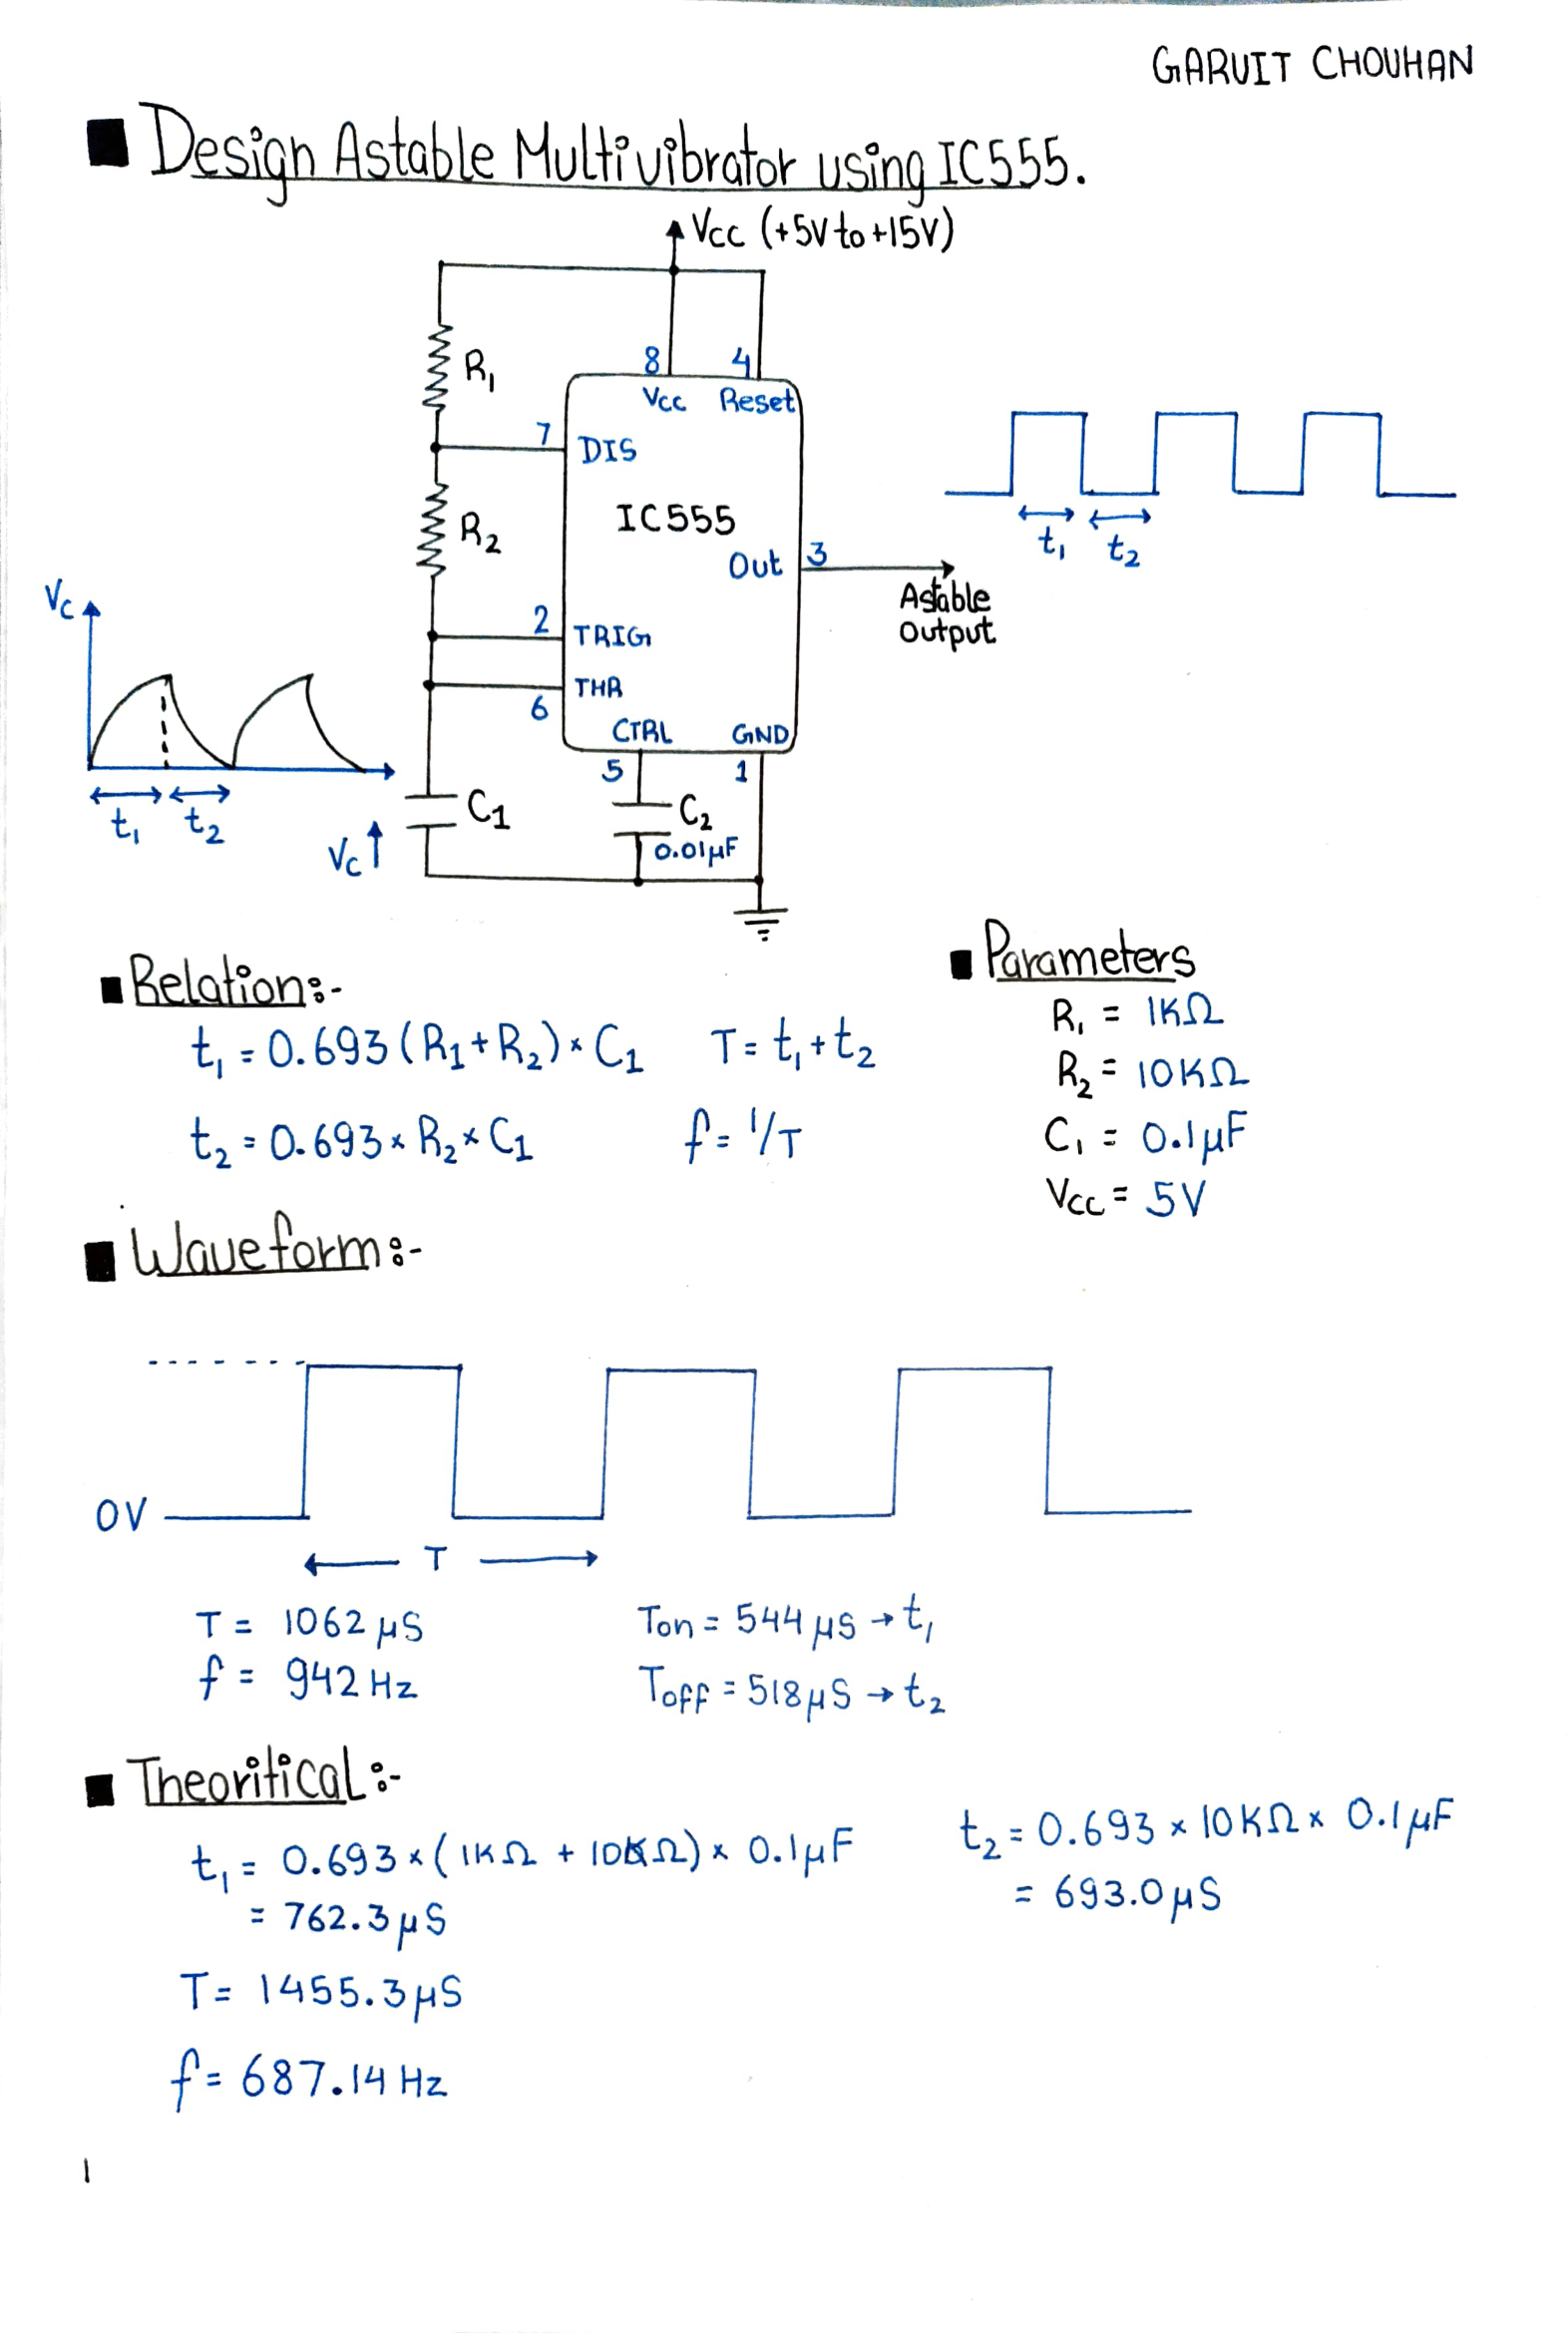 GARVIT CHOUHAN
Design Astable Multivibrator using IC555.
Vcc (+5V to +15V)
R1
8
4
Vcc
Reset
7
DIS
R2
IC555
Out
3
Astable
Output
t1
t2
Vc
2
TRIG
THR
6
CTRL
GND
5
1
C1
C2
0.01µF
t1
t2
Vc
Relation:-
t1 = 0.693 (R1+R2) × C1
T = t1 + t2
t2 = 0.693 × R2 × C1
f = 1/T
Parameters
R1 = 1KΩ
R2 = 10KΩ
C1 = 0.1µF
Vcc = 5V
Waveform:-
0V
T
T = 1062 µS
Ton = 544 µS → t1
f = 942 Hz
Toff = 518 µS → t2
Theoritical:-
t1 = 0.693 × (1KΩ + 10KΩ) × 0.1µF
= 762.3 µS
t2 = 0.693 × 10KΩ × 0.1µF
= 693.0 µS
T = 1455.3 µS
f = 687.14 Hz
1